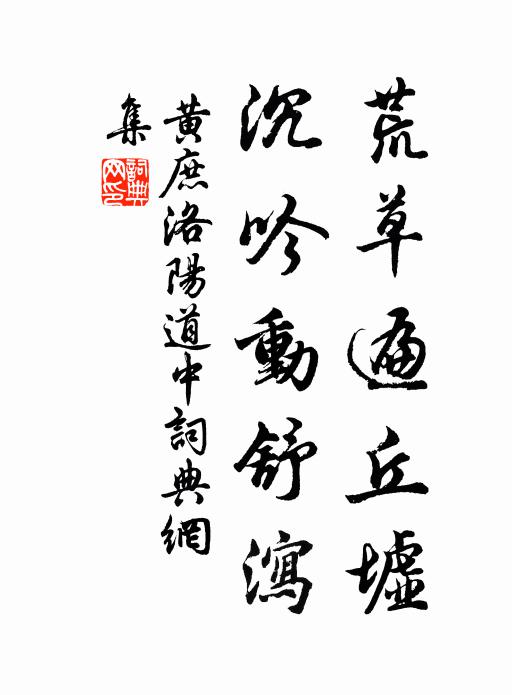 荒草遍丘墟
沉吟動舒瀉
黄庶洛陽道中詞典網
集
詞典网印